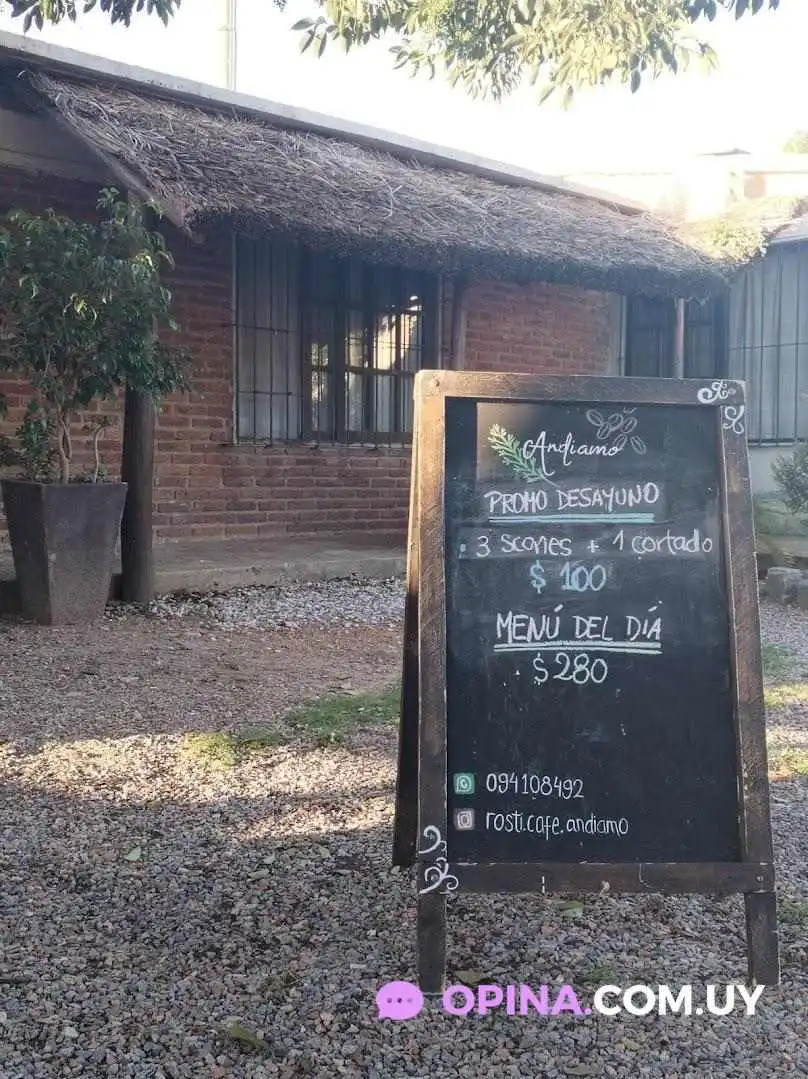 Andiamo
PROMO DESAYUNO
3 scones + 1 cortado
$ 100
MENÚ DEL DÍA
$280
094108492
rosti.cafe.andiamo
OPINA.COM.UY